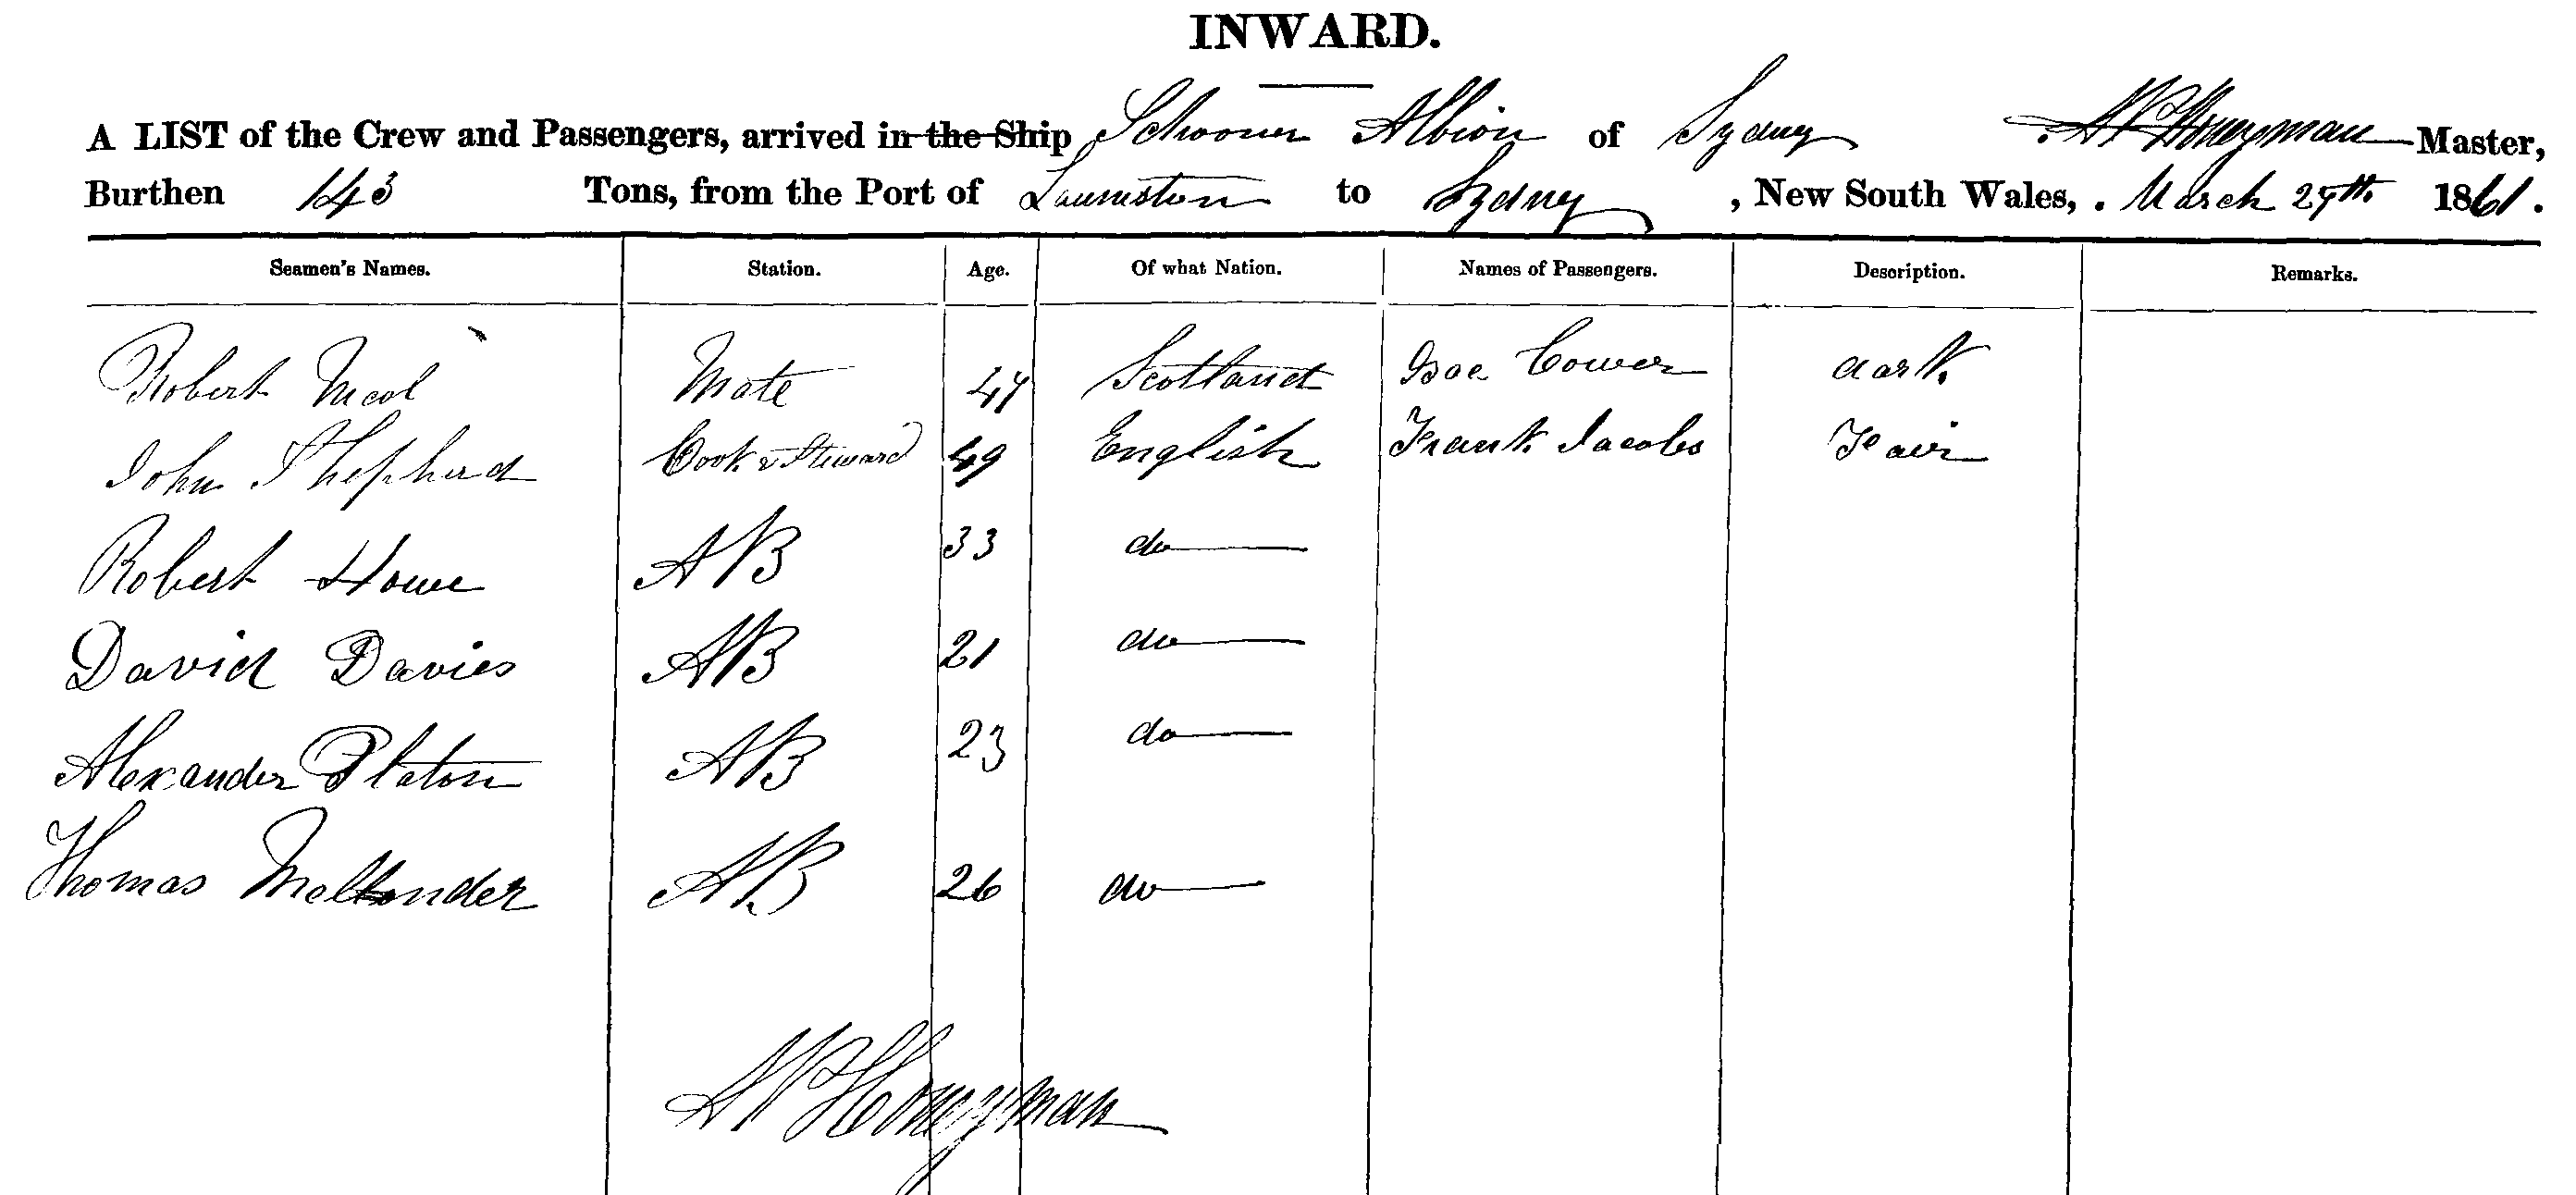 INWARD.
A LIST of the Crew and Passengers, arrived in the Ship Schooner Albion of Sydney A P Honeyman Master,
Burthen 143 Tons, from the Port of Launceston to Sydney, New South Wales, March 27th 1861.
Seamen's Names. Station. Age. Of what Nation. Names of Passengers. Description. Remarks.
Robert Nicol Mate 47 Scotland Cower dark
John Shepherd Cook & Steward 49 English Frank Jacobs Fair
Robert Howe AB 33 do
David Davies AB 21 do
Alexander Platon AB 23 do
Thomas AB 26 do
A P Honeyman